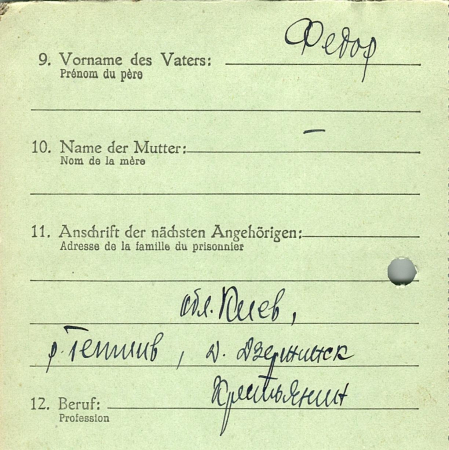 9. Vorname des Vaters: Федор
Prénom du père
10. Name der Mutter: –
Nom de la mère
11. Anschrift der nächsten Angehörigen:
Adresse de la famille du prisonnier
обл. Киев,
р. , д. Дзержинск
12. Beruf: Крестьянин
Profession